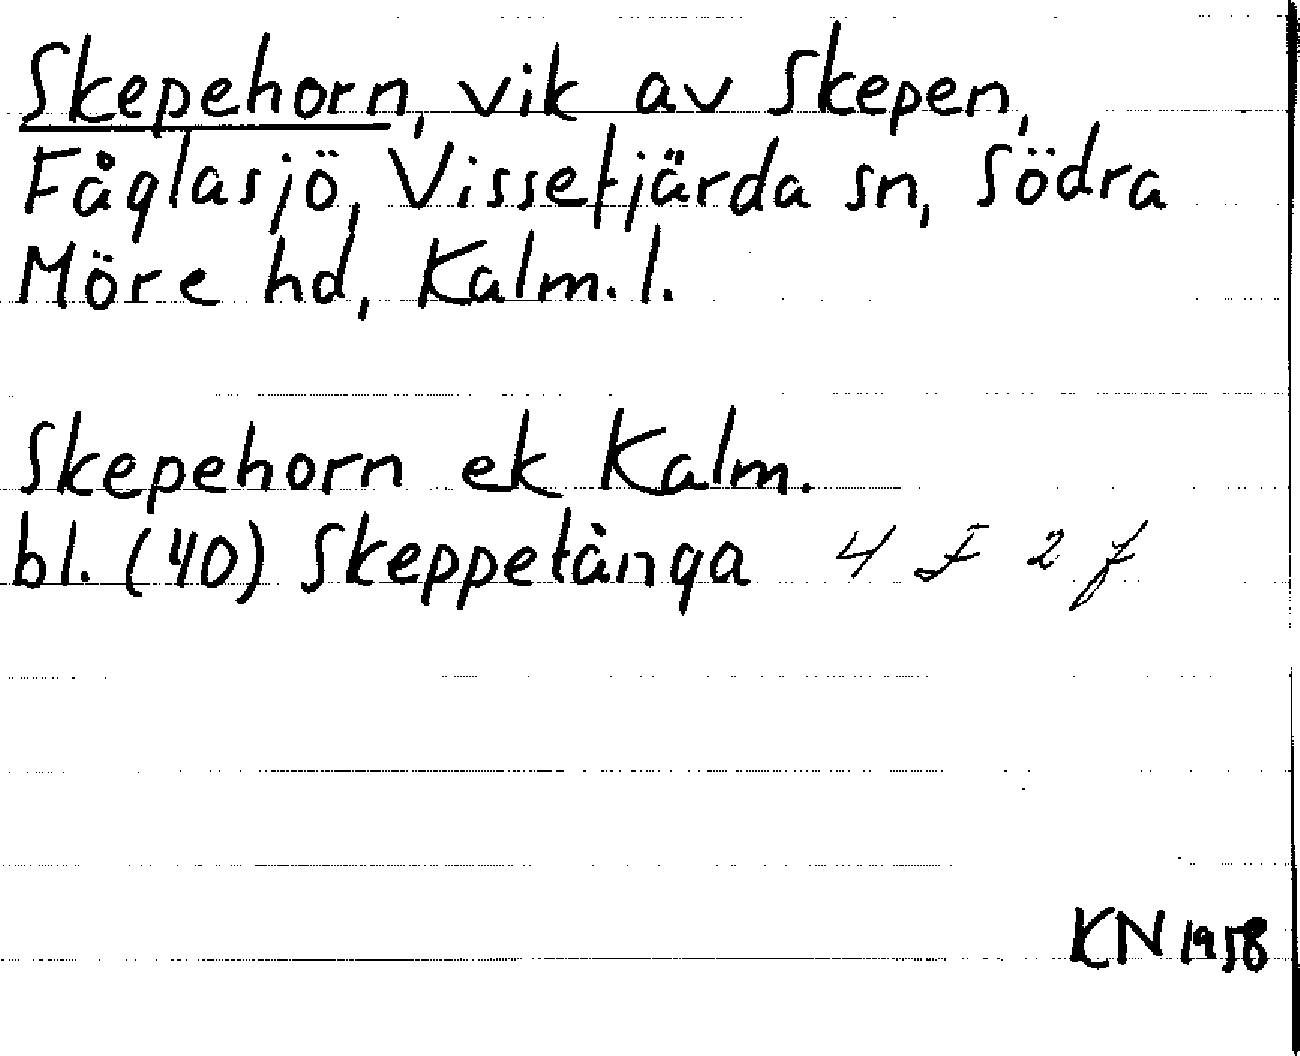 Skepehorn, vik av Skepen,
Fåglasjö, Vissefjärda sn, Södra
Möre hd, Kalm. l.
Skepehorn ek Kalm.
bl. (40) Skeppetånga 4 F 2 f
KN 1958